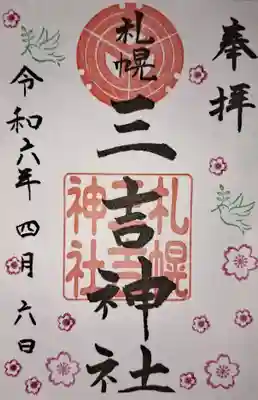 奉拝
札幌
三吉神社
札幌
三吉
神社
令和六年 四月 六日